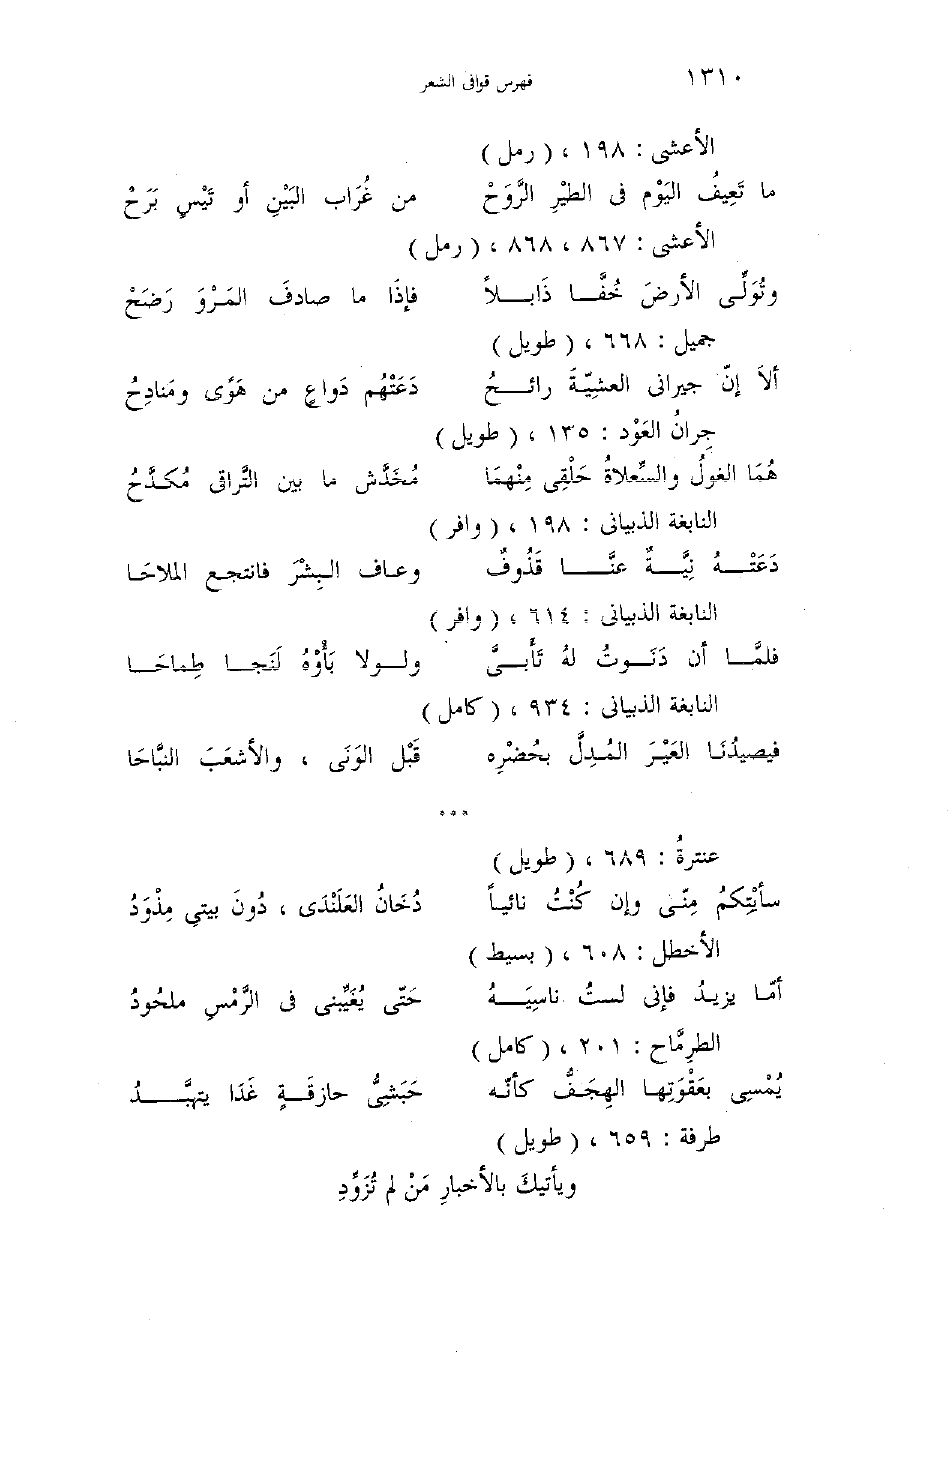 ١٣١٠
فهرس قوافى الشعر
الأعشى : ١٩٨ ، ( رمل )
ما تَعِيفُ اليَوْم فى الطيْرِ الرَّوَحْ من غُرَاب البَيْنِ أو تَيْسٍ بَرَحْ
الأعشى : ٨٦٧ ، ٨٦٨ ، ( رمل )
وتُوَلِّى الأرضَ خُفًّـا ذَابـلاً فإذَا ما صادفَ المَرْوَ رَضَحْ
جميل : ٦٦٨ ، ( طويل )
ألاَ إنّ جيرانى العشيّةَ رائـحُ دَعَتْهُم دَواعٍ من هَوًى ومَنادِحُ
جِرانُ العَوْد : ١٣٥ ، ( طويل )
هُمَا الغولُ والسِّعلاةُ حَلْقِى مِنْهمَا مُخَدَّش ما بين التَّراقى مُكدَّحُ
النابغة الذبيانى : ١٩٨ ، ( وافر )
دَعَتْـهُ نِيَّـةٌ عنَّـا قَذُوفٌ وعاف البِشْرَ فانتجع الملاحَا
النابغة الذبيانى : ٦١٤ ، ( وافر )
فلمَّـا أن دَنَـوتُ لهُ تَأَبـىَّ ولـولا بَأْوُهُ لَنَجـا طِماحَـا
النابغة الذبيانى : ٩٣٤ ، ( كامل )
فيصيدُنَا العَيْرَ المُدِلَّ بحُضْرِه قَبْل الوَنَى ، والأشعَبَ النبَّاحَا
***
عنترةُ : ٦٨٩ ، ( طويل )
سأتِيْكمُ مِنّى وإن كُنْتُ نائياً دُخَانُ العَلَنْدَى ، دُونَ بيتىِ مِذْوَدُ
الأخطل : ٦٠٨ ، ( بسيط )
أمّا يزيدُ فإنى لستُ ناسِيَـهُ حَتّى يُغَيِّبنى فى الرَّمْسِ ملحُودُ
الطرِمَّاح : ٢٠١ ، ( كامل )
يُمْسِى بعَقْوَتِها الهِجَفُّ كأنّه حَبَشىُّ حازقَـةٍ غَدَا يتهبَّـدُ
طرفة : ٦٥٩ ، ( طويل )
ويأتيكَ بالأخبارِ مَنْ لم تُزَوِّدِ